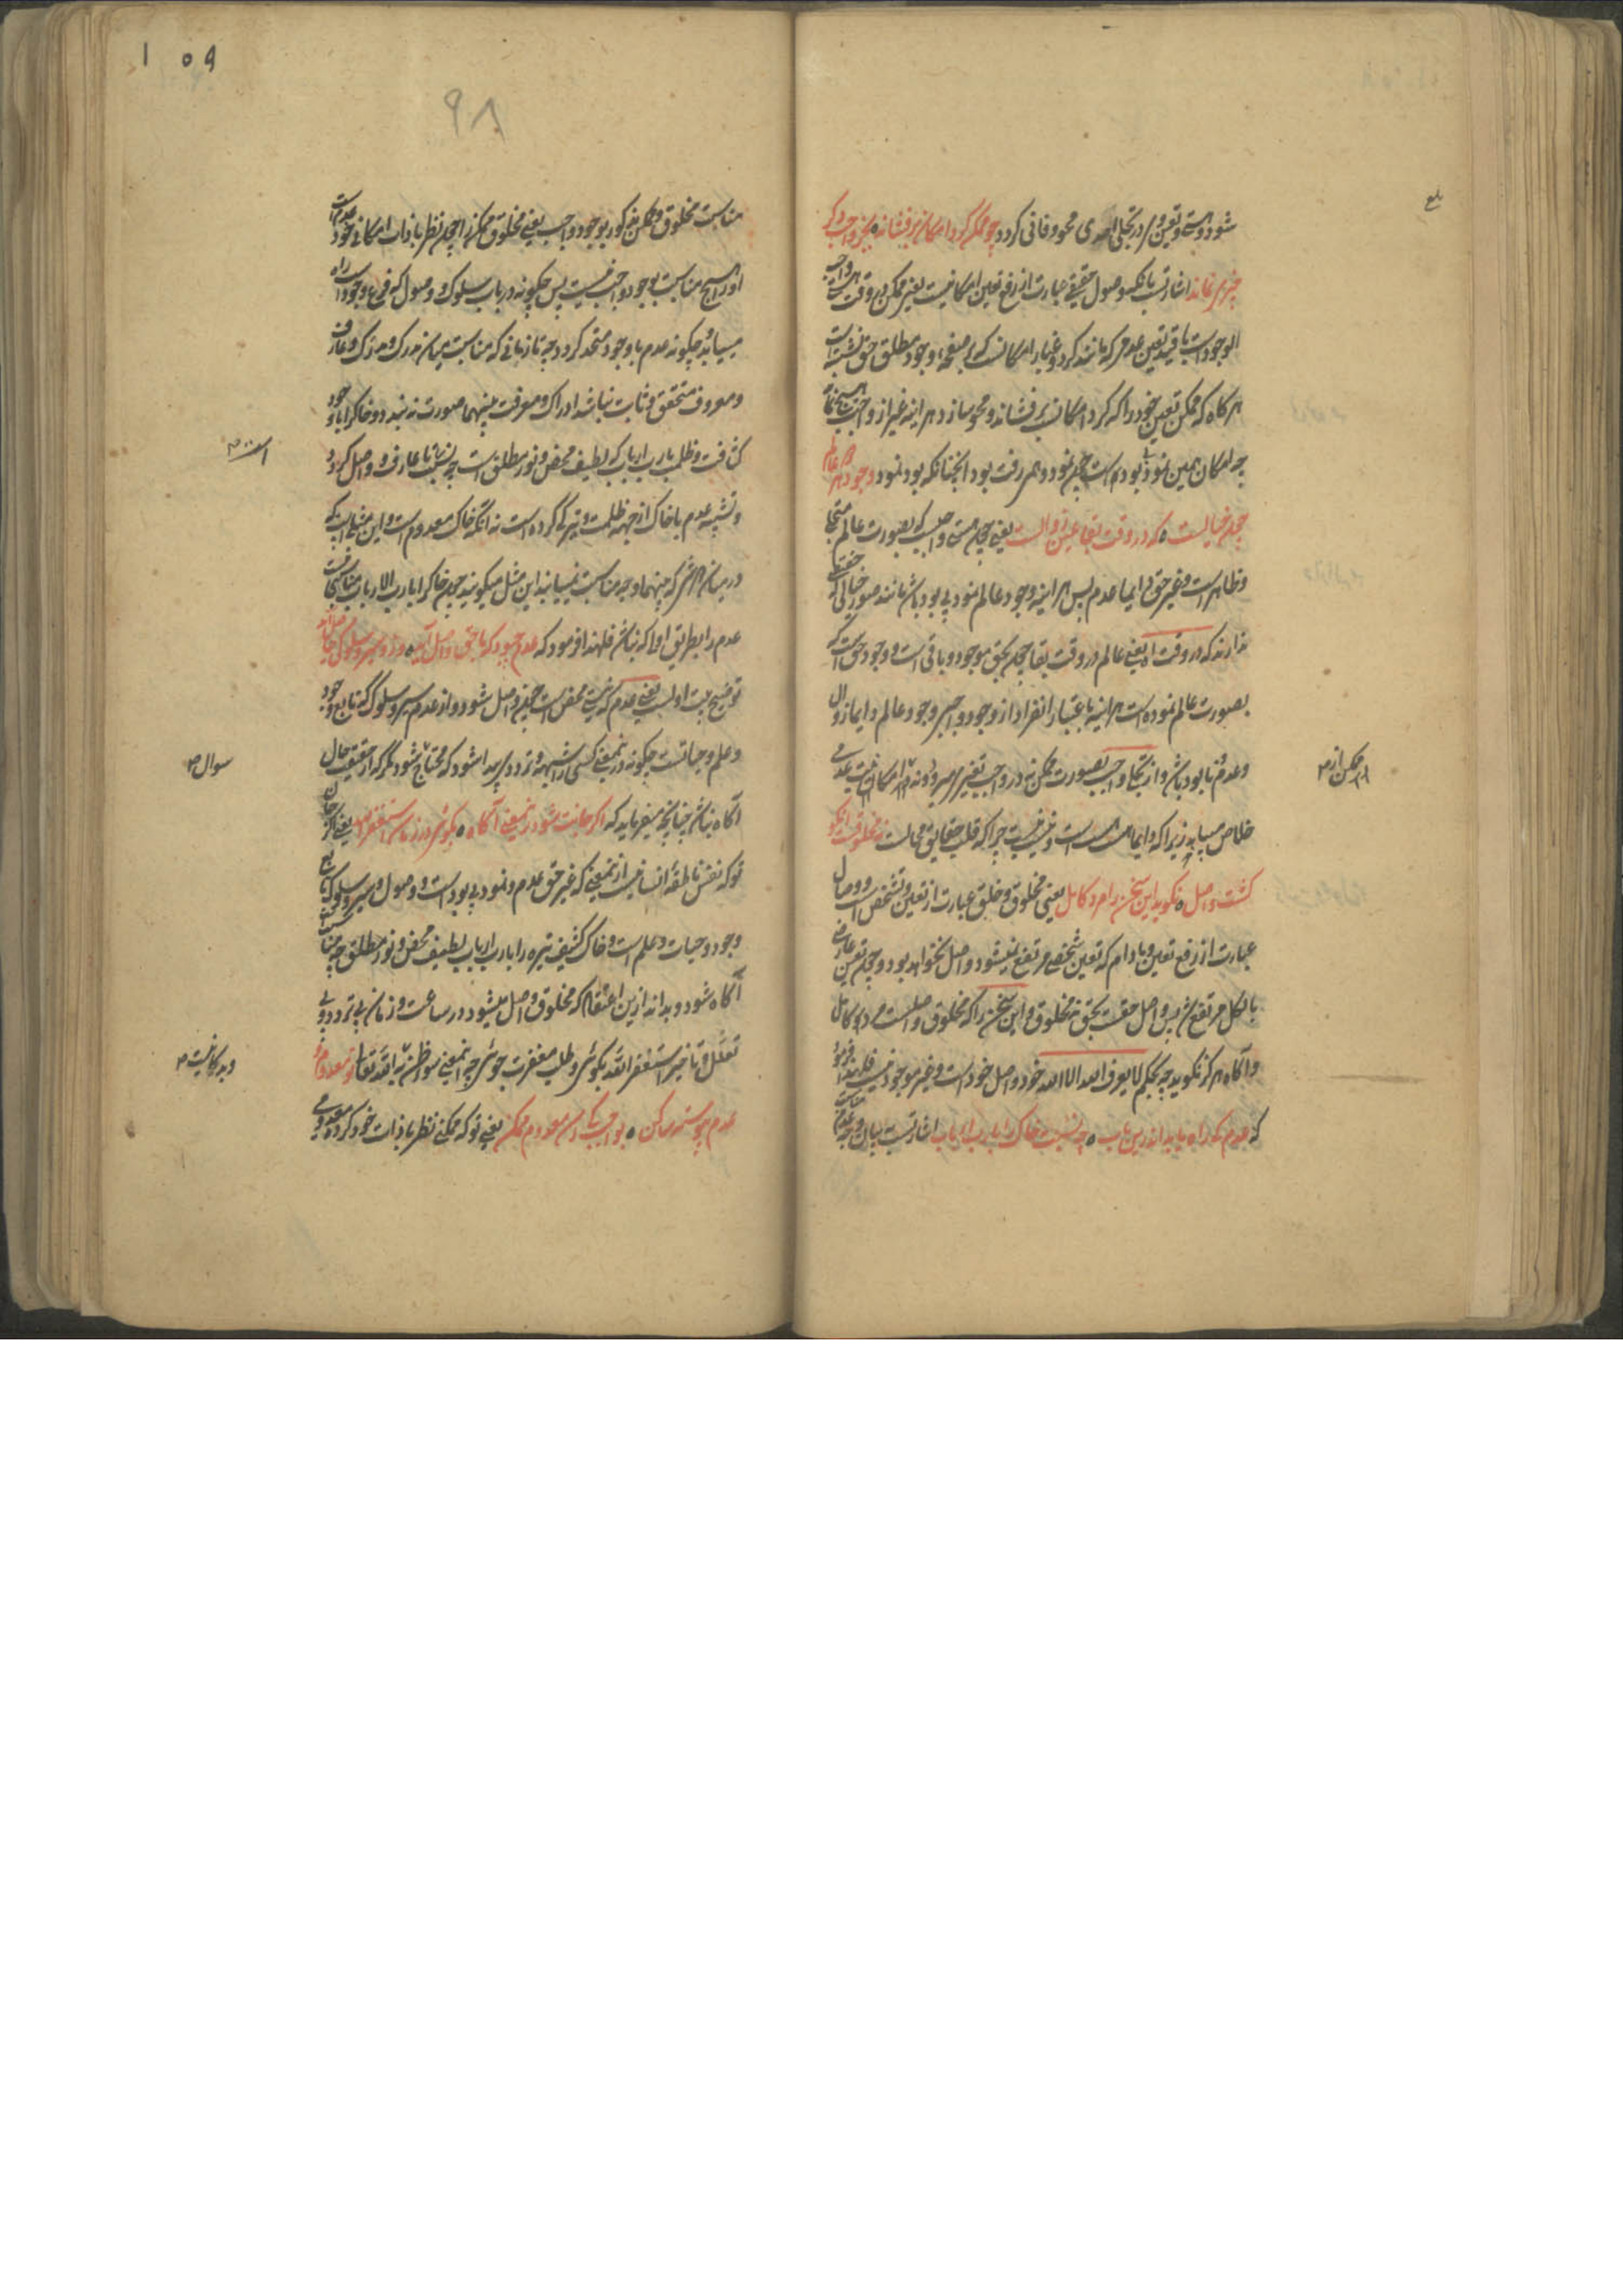 شود و هستی و تعین وی در تجلی احدی محو و فانی گردد چو ممکن گرد امکان برفشاند ه بجز واجب دگر
چیزی نماند اشارتست بآنکه وصول حقیقی عبارت از رفع تعین امکانیست یعنی ممکن در وقت
الوجود است با قید تعین عدمی که مانند گرد و غبار امکانست که بر صفحهٔ وجود مطلق حق نشسته است
هر گاه که ممکن تعین خود را که گرد امکانست برفشاند و محو سازد هر اینه غیر از واجب هیچ نماند
چه امکان همین نمود بی بود است چون نمود وهمی رفت بود آنچنانکه بود نمود وجود هر دو عالم
چون خیالست ه که در وقت بقا عین زوالست یعنی چون هستی واجبست که بصورت عالم متجلی
و ظاهر است و غیر حق دایما عدم پس هر اینه وجود عالم نمود بی بود باشد مانند صور خیالی که حقیقتی
ندارند که در وقت الخ یعنی عالم در وقت بقا چون بحق موجود و باقی است و وجود حق است که
بصورت عالم نموده است هر اینه باعتبار انفراد از وجود واجبی وجود عالم دایما زوال
و عدم نابود باشد و از تجلی واجب بصورت ممکن نه در واجب تغییر می‌رود و نه
خلاص می‌یابد زیرا که دایما هست هست است و نیست نیست چرا که قلب حقایق محالست نه مخلوقست آنکو
گشت واصل ه نگوید این سخن را مرد کامل یعنی مخلوق و خلق عبارت از تعین و تشخص است و وصال
عبارت از رفع تعین و مادام که تعین شخصی مرتفع نمیشود واصل نخواهد بود و چون تعین عارضی
بالکل مرتفع شد پس واصل حقست بحق نه مخلوق و این سخن را که مخلوق واصلست مرد کامل
و آگاه هرگز نگوید چه بحکم لا یعرف الله الا الله خود واصل خود است و غیر موجود نیست فلهذا فرمود
که عدم کی راه یابد اندرین باب ه چه نسبت خاک را با رب ارباب اشارتست ببیان وجه عدم مناسبت
ممکن از ص
بلغ
۹۸
مناسبت مخلوق و ممکن مذکور بوجود واجب یعنی مخلوق ممکن را چون نظر با ذات امکانی خود عدمست
او را هیچ مناسبت بوجود واجب نیست پس چگونه در باب سلوک و وصول که فرع وجود است راه
می‌یابد و چگونه عدم با وجود متحد گردد چه تا زمانی که مناسبت میان مدرک و مدرک و عارف
و معروف متحقق و ثابت نباشد ادراک و معرفت بینهما صورت نه بندد و خاک را با وجود
کثافت و ظلمت با رب ارباب که لطیف محض و نور مطلق است چه نسبت تا عارف و واصل گردد
و تشبیه عدم با خاک از جهة ظلمت و تیرگی کرده است نه آنکه خاک معدوم است و این مثلی است که
در میان هر دو شی که بینهما وجه مناسبت نمی‌یابند این مثل میگویند چون خاک را با رب الارباب مناسبت
عدم را بطریق اولی که نباشد فلهذا فرمود که عدم چبود که با حق واصل آید ه وزو سیر و سلوکی حاصل آید
توضیح بیت اولست یعنی عدم که نیستی محض است چون واصل شود و از عدم سیر و سلوک که تابع وجود
و علم و حیاتست چگونه در نمیعنی کسی را شبهه و تردد پیدا شود که محتاج شود مگر که از حقیقت حال
آگاه نباشد چنانچه میفرماید که اگر جانت شود زین معنی آگاه ه بگوئی در زمان استغفرالله یعنی اگر جان
تو که نفس ناطقهٔ انسانیست از نمیعنی که غیر حق عدم و نمود بی بود است و وصول و سیر و سلوک که تابع
وجود و حیات و علم است و خاک کثیف تیره را با رب ارباب لطیف محض و نور مطلق چه مناسبت
آگاه شود و بداند ازین اعتقاد که مخلوق واصل میشود در ساعت و زمان بی تردد و بی
تعلل و تاخیر استغفرالله بگوئی و طلب مغفرت جوئی چه این معنی سوء ظن به الله تعالی تو معدوم و
عدم پیوسته ساکن ه بواجب کی رسد معدوم ممکن یعنی تو که ممکنی نظر با ذات خود کرده معدومی
سوال ص